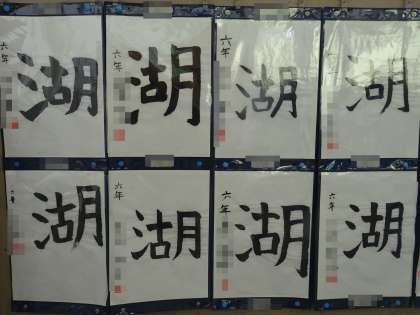 湖
六年
湖
六年
湖
六年
湖
六年
湖
六年
湖
六年
湖
六年
湖
六年